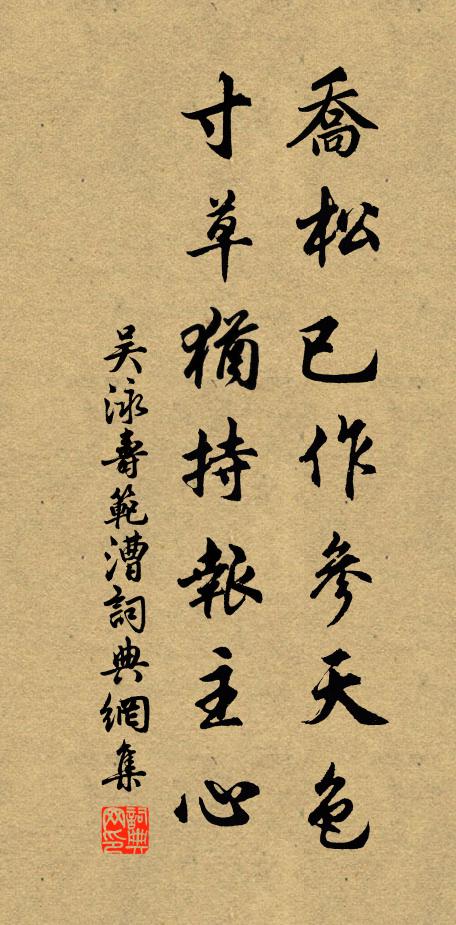 喬松已作參天色
寸草猶持報主心
吳泳壽範漕詞典網集
詞典网印